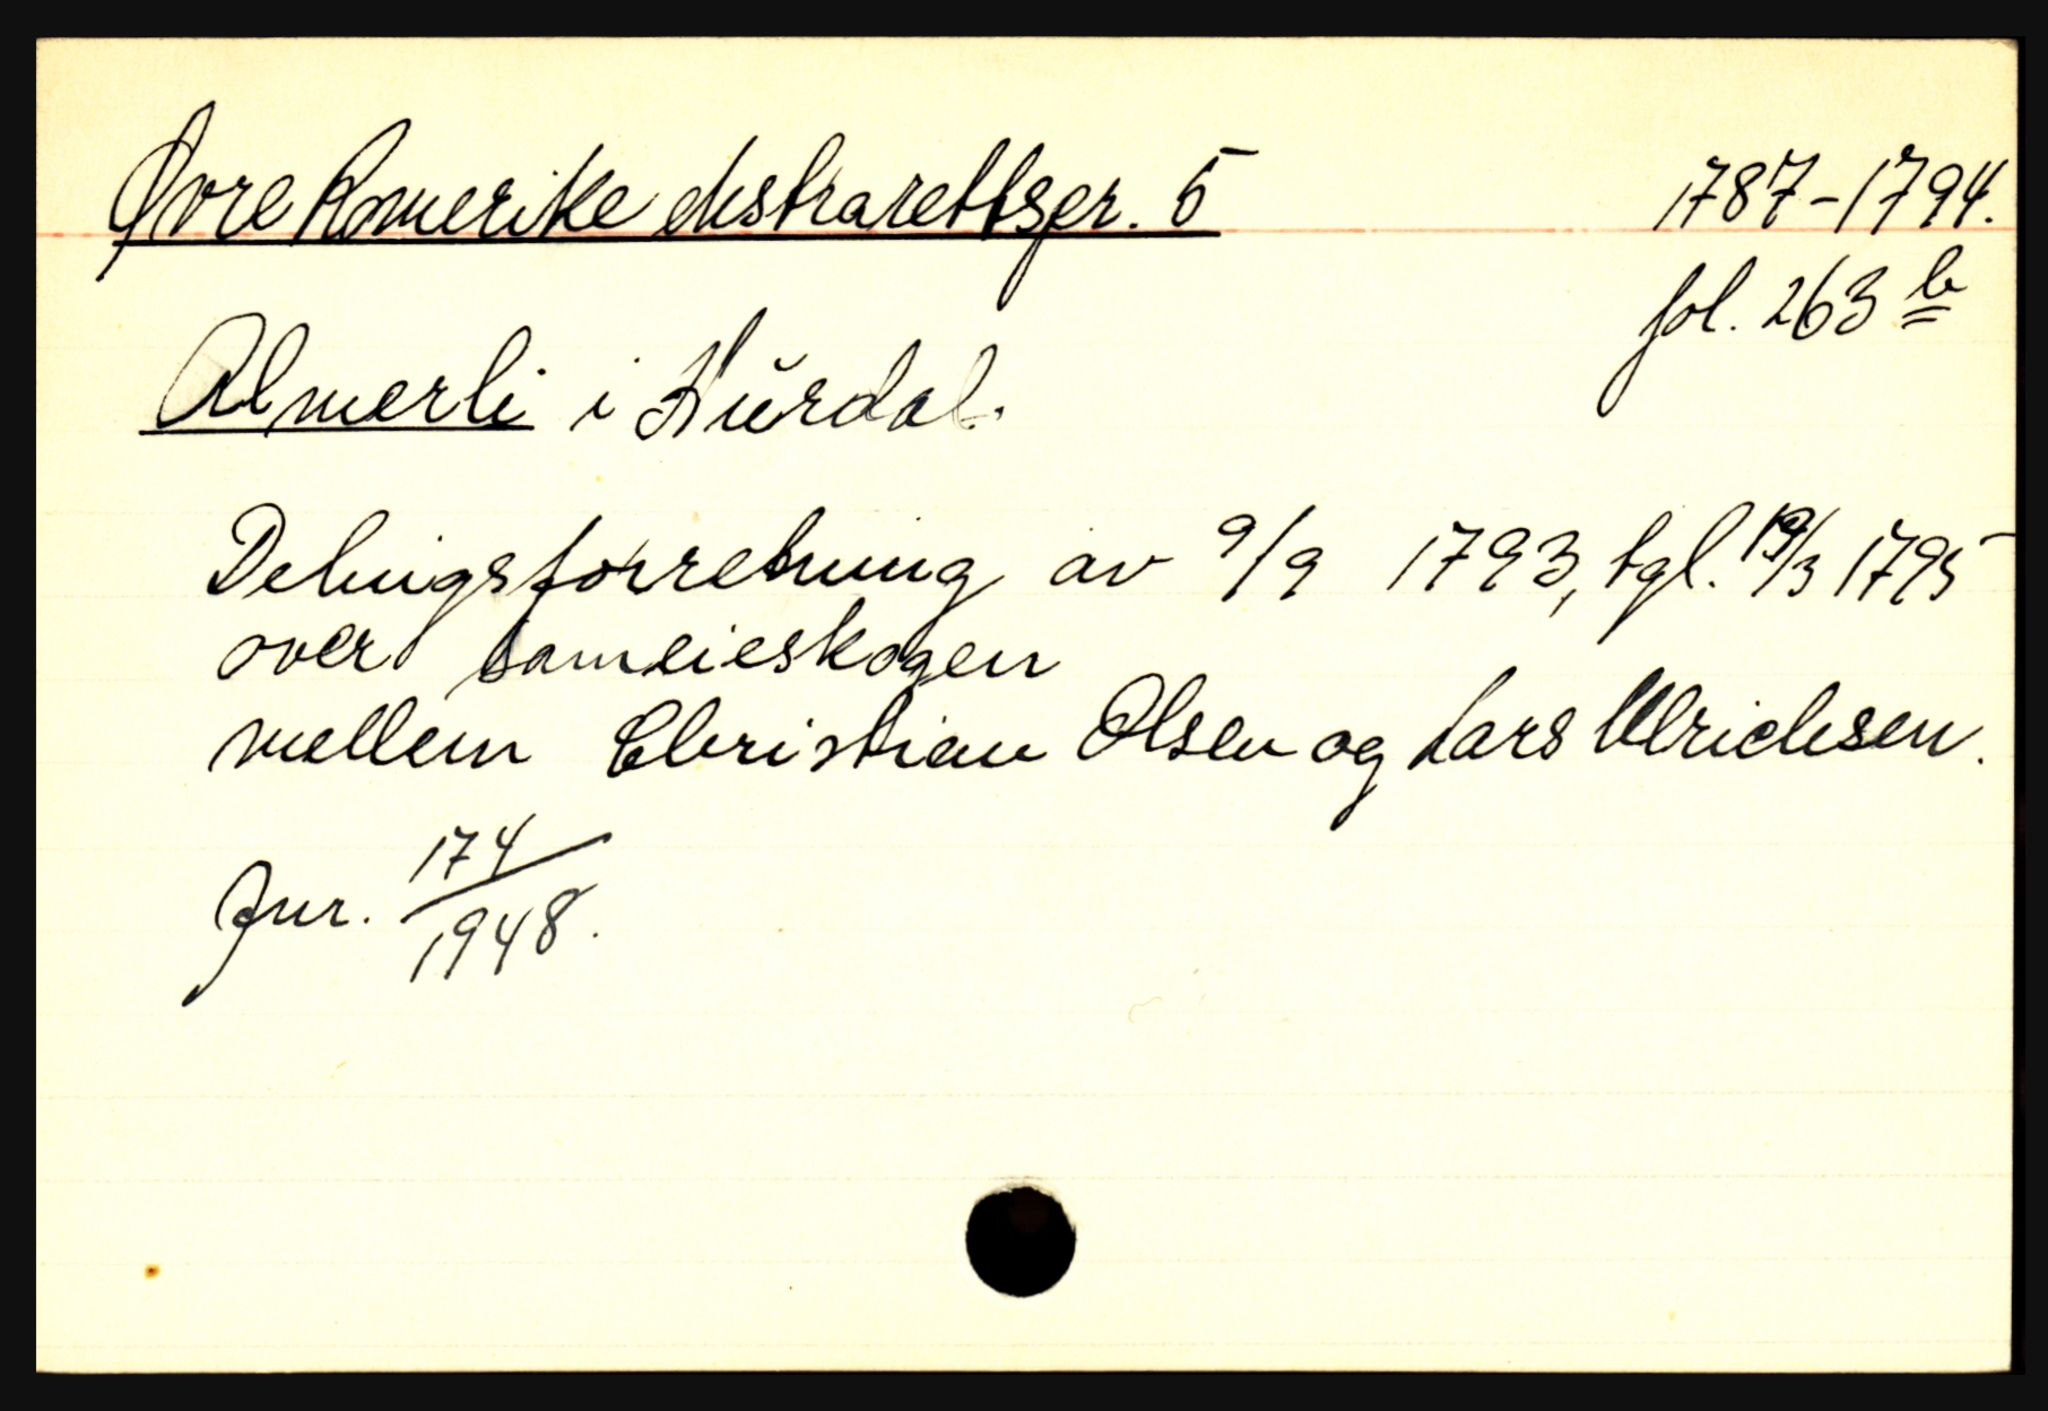 Øvre Romerike ekstrarettspr. 5 1787-1794.
fol. 263 b
Almerli i Hurdal.
Delingsforretning av 9/9 1793, tgl. 19/3 1795
over sameieskogen
mellem Christian Olsen og Lars Ulrichsen.
Jnr. 174/1948.